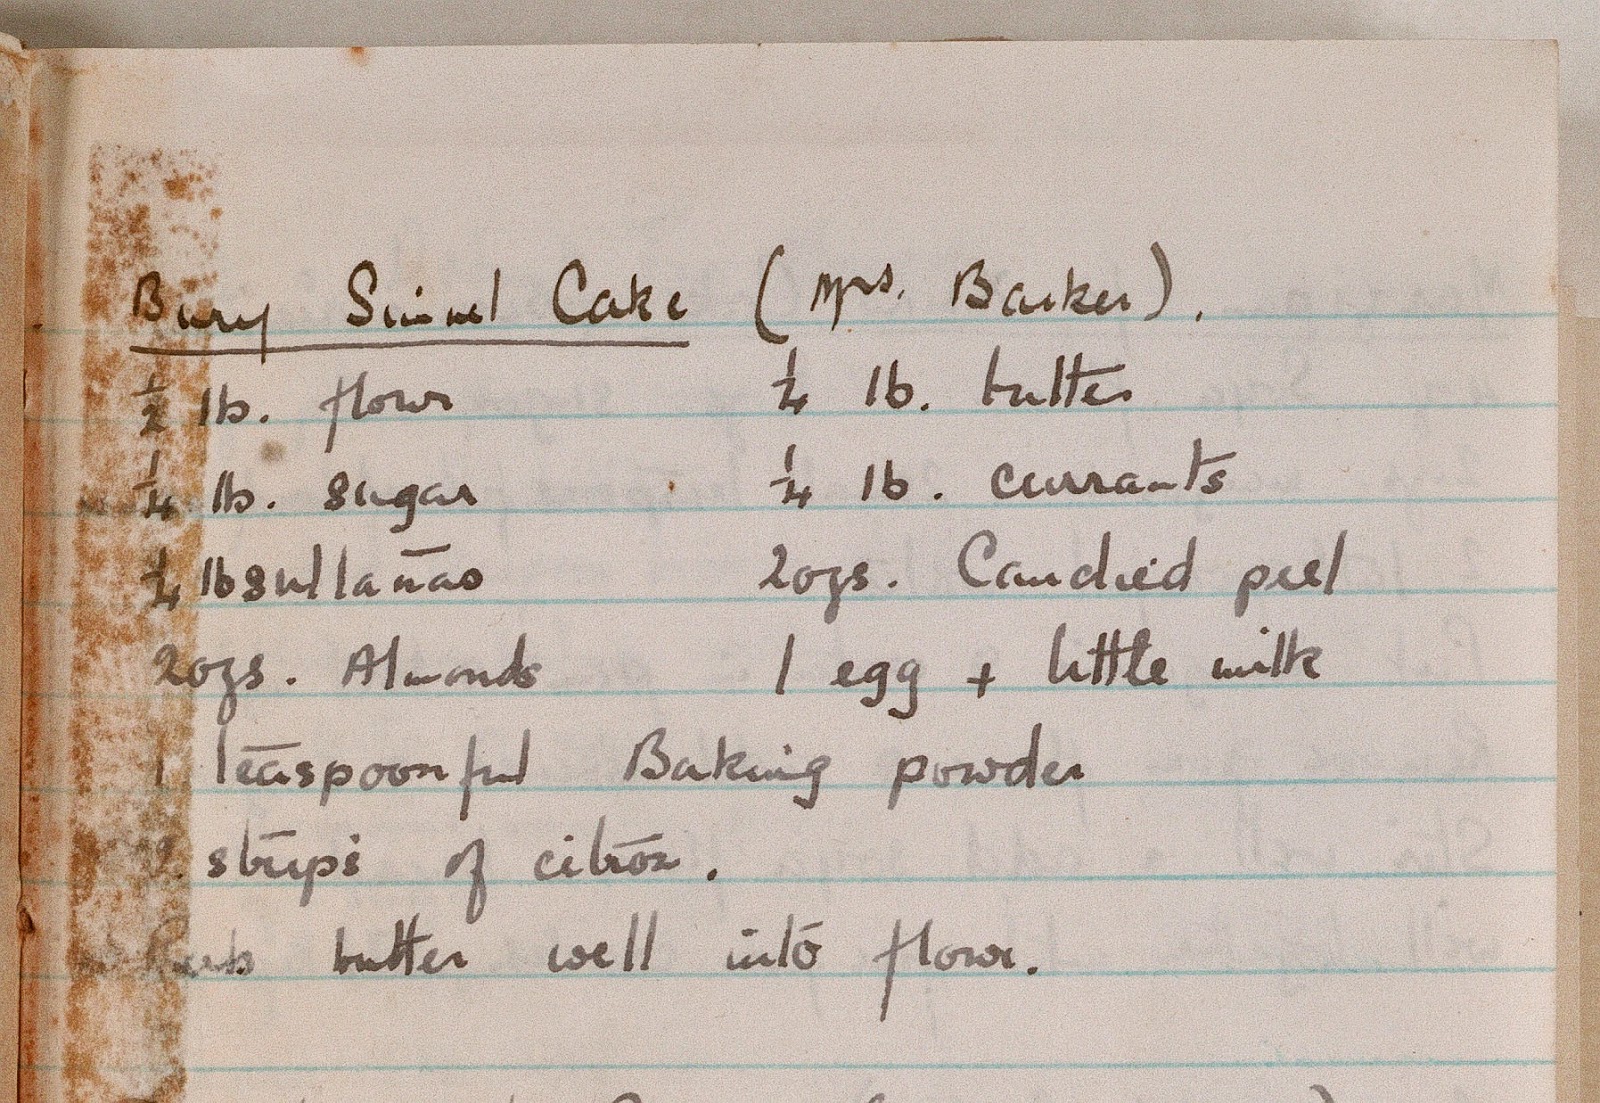 Bury Simnel Cake (Mrs. Barker).
½ lb. flour ¼ lb. butter
¼ lb. sugar ¼ lb. currants
¼ lb sultanas 2ozs. Candied peel
2ozs. Almonds 1 egg + little milk
1 teaspoonful Baking powder
2 strips of citron.
Rub butter well into flour.